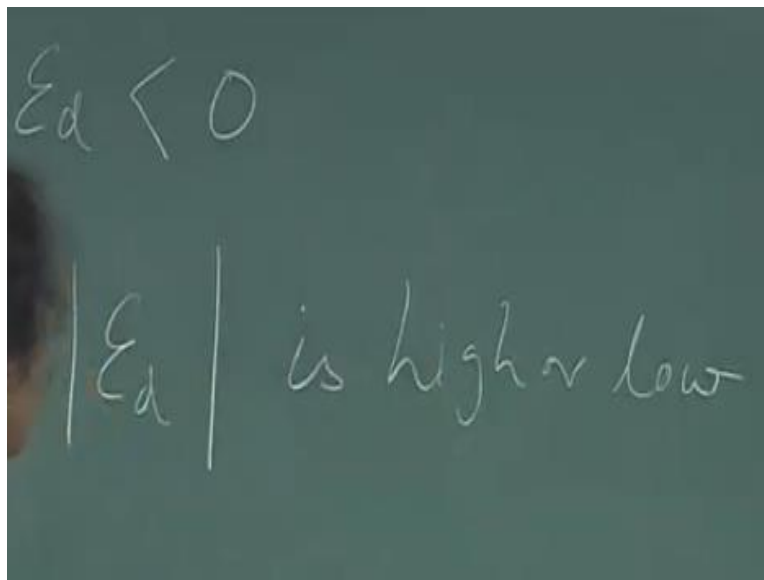 ε_d < 0
|ε_d| is high or low